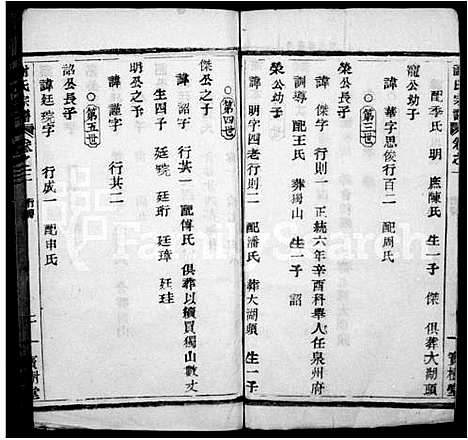 謝氏宗譜 卷之一
配季氏 明 庶陳氏 生一子 傑 俱葬大湖頭
寵公幼子
諱 華字思俊行百二 配周氏
○第三世
榮公長子
諱 傑字 行則一 正統六年辛酉科舉人任泉州府
訓導 配王氏 葬獨山 生一子 詔
榮公幼子
諱 明字四老行則二 配潘氏 葬大湖頭 生一子
○第四世
傑公之子
諱 詔字 行其一 配傅氏 俱葬以續買獨山數丈
生四子 廷琬 廷珩 廷璋 廷珪
明公之子
諱 謹字 行其二
○第五世
詔公長子
諱 廷琬字 行成一 配申氏
氏宗譜 卷之一
寶樹堂
FamilySearch